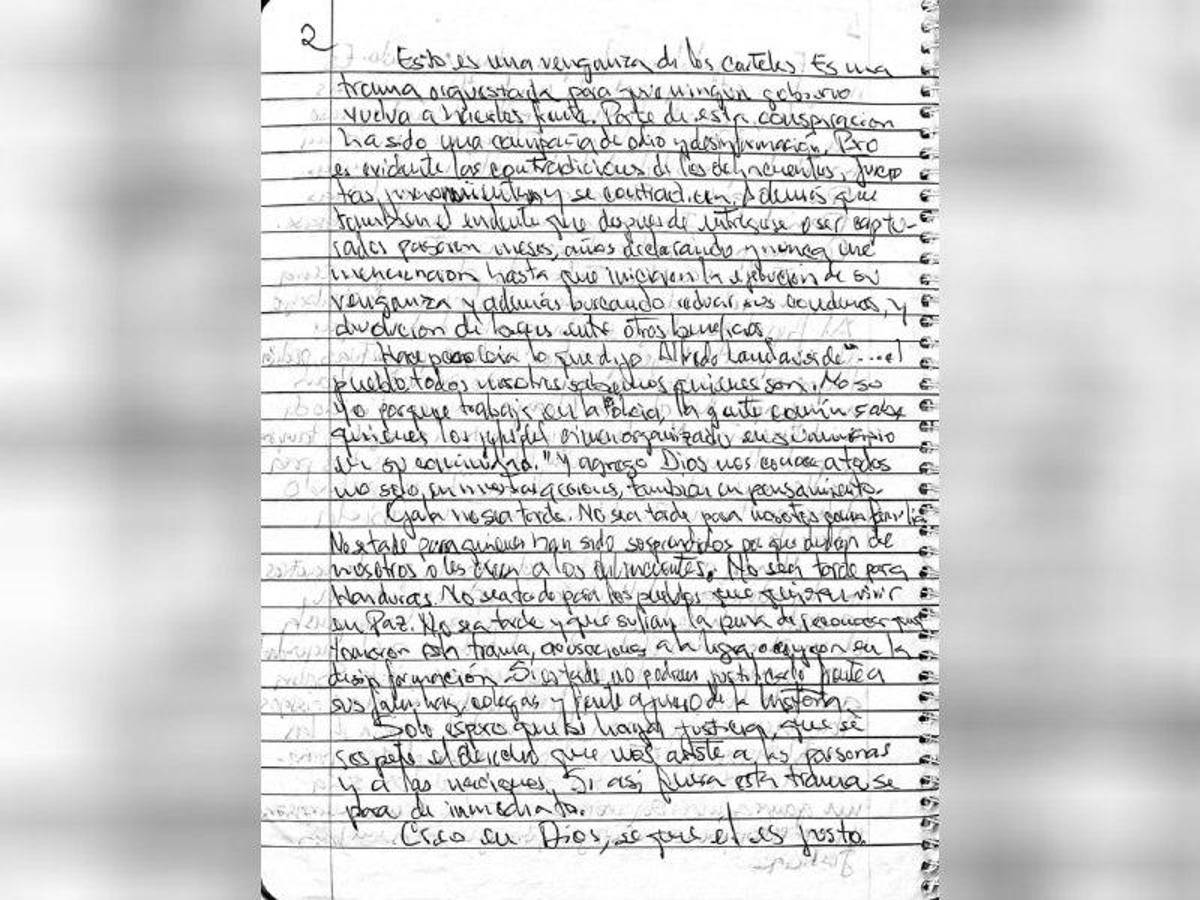 2
Esto es una venganza de los carteles Es una
trama orquestada para que ningún gobierno
vuelva a hacerles frente. Parte de esta conspiracion
ha sido una campaña de odio y desinformación. Pero
es evidente las contradicciones de los delincuentes,
y se contradicen. Además que
tambien evidente que despues de entregarse o ser captu-
rados pasaron meses, años declarando y nunca me
mencionaron hasta que iniciaron la ejecucion de su
venganza y además buscando reducir sus condenas, y
devolucion de entre otros beneficios.
Hace poco leia lo que dijo Alfredo Landaverde "...el
pueblo todos nosotros sabemos quienes son. No so
yo porque trabaje en la Policia, la gente común sabe
quienes los jefes del crimen organizado en su municipio
en su comunidad." Y agrego Dios nos conoce a todos
no solo, en nuestras acciones, tambien en pensamiento.
Ojala no sea tarde. No sea tarde para nosotros como familia
No se tarde para quienes han sido sorprendidos para que duden de
nosotros o les crean a los delincuentes. No sea tarde para
Honduras. No sea tarde para los pueblos que quieren vivir
en Paz. No sea tarde y que sufran la pena de reconocer que
esta trama, acusaciones a la ligera en la
desinformación Si es tarde no podran justificarlo frente a
sus familias, colegas y frente a juicio de la historia
Solo espero que haya justicia, que se
respete el derecho que nos asiste a las personas
y a las naciones. Si asi fuera esta trama se
para de inmediato.
Creo en Dios, se que él es justo.